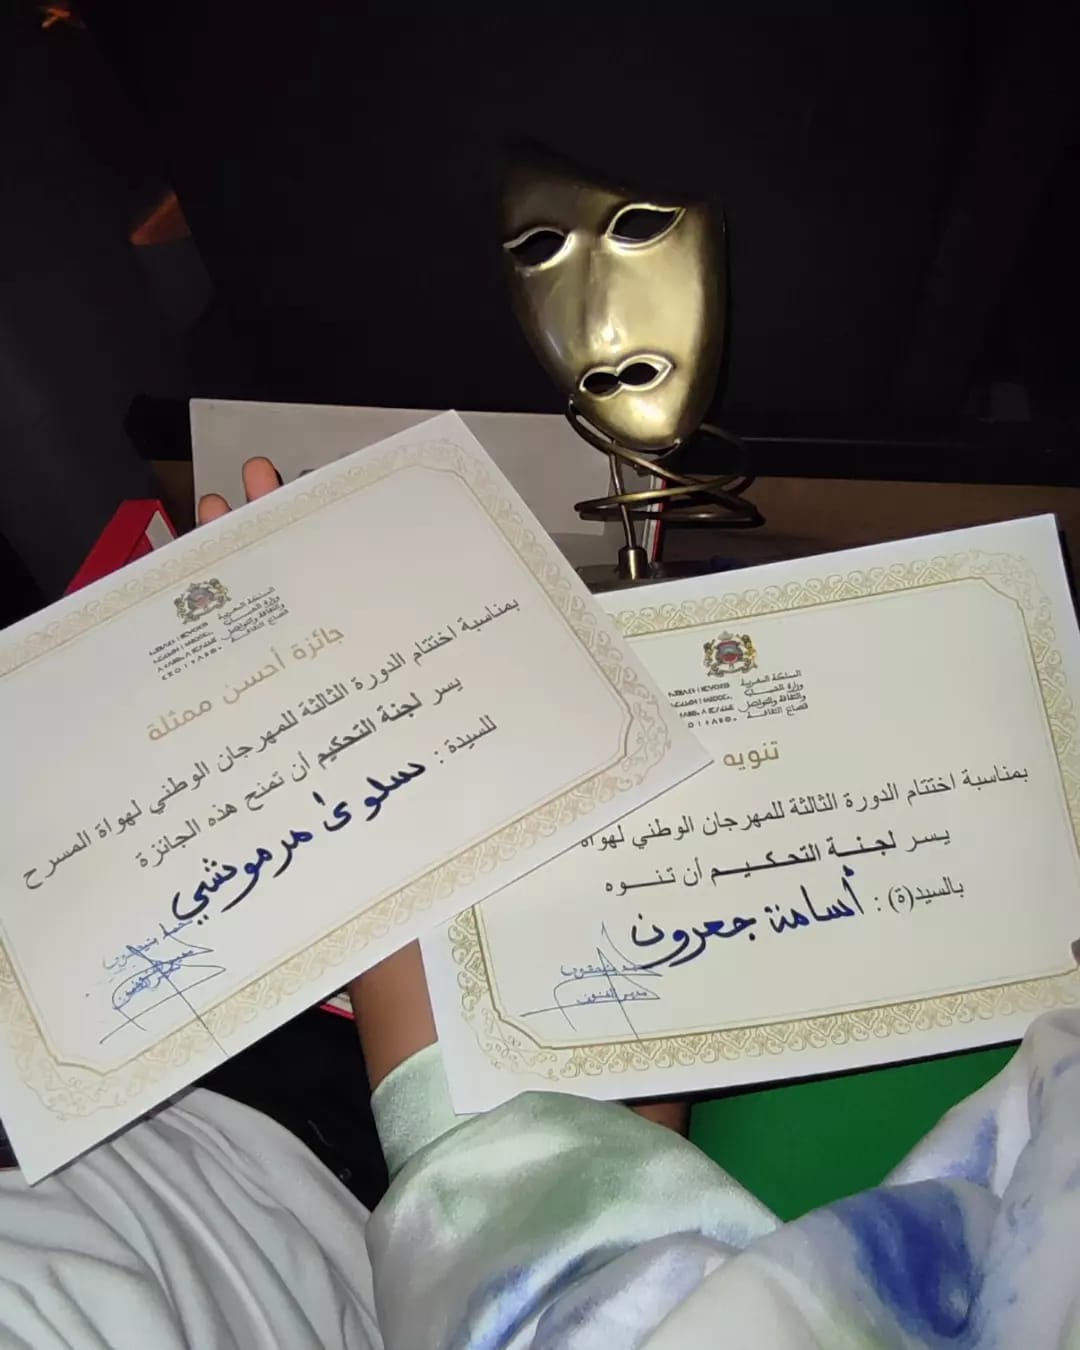 المملكة المغربية
وزارة الشباب
والثقافة والتواصل
قطاع الثقافة
جائزة أحسن ممثلة
بمناسبة اختتام الدورة الثالثة للمهرجان الوطني لهواة المسرح
يسر لجنة التحكيم أن تمنح هذه الجائزة
للسيدة : سلوى مرموشي
مدير الفنون
المملكة المغربية
وزارة الشباب
والثقافة والتواصل
قطاع الثقافة
تنويه
بمناسبة اختتام الدورة الثالثة للمهرجان الوطني لهواة
يسر لجنة التحكيم أن تنوه
بالسيد(ة) : أسامة جعرون
مدير الفنون